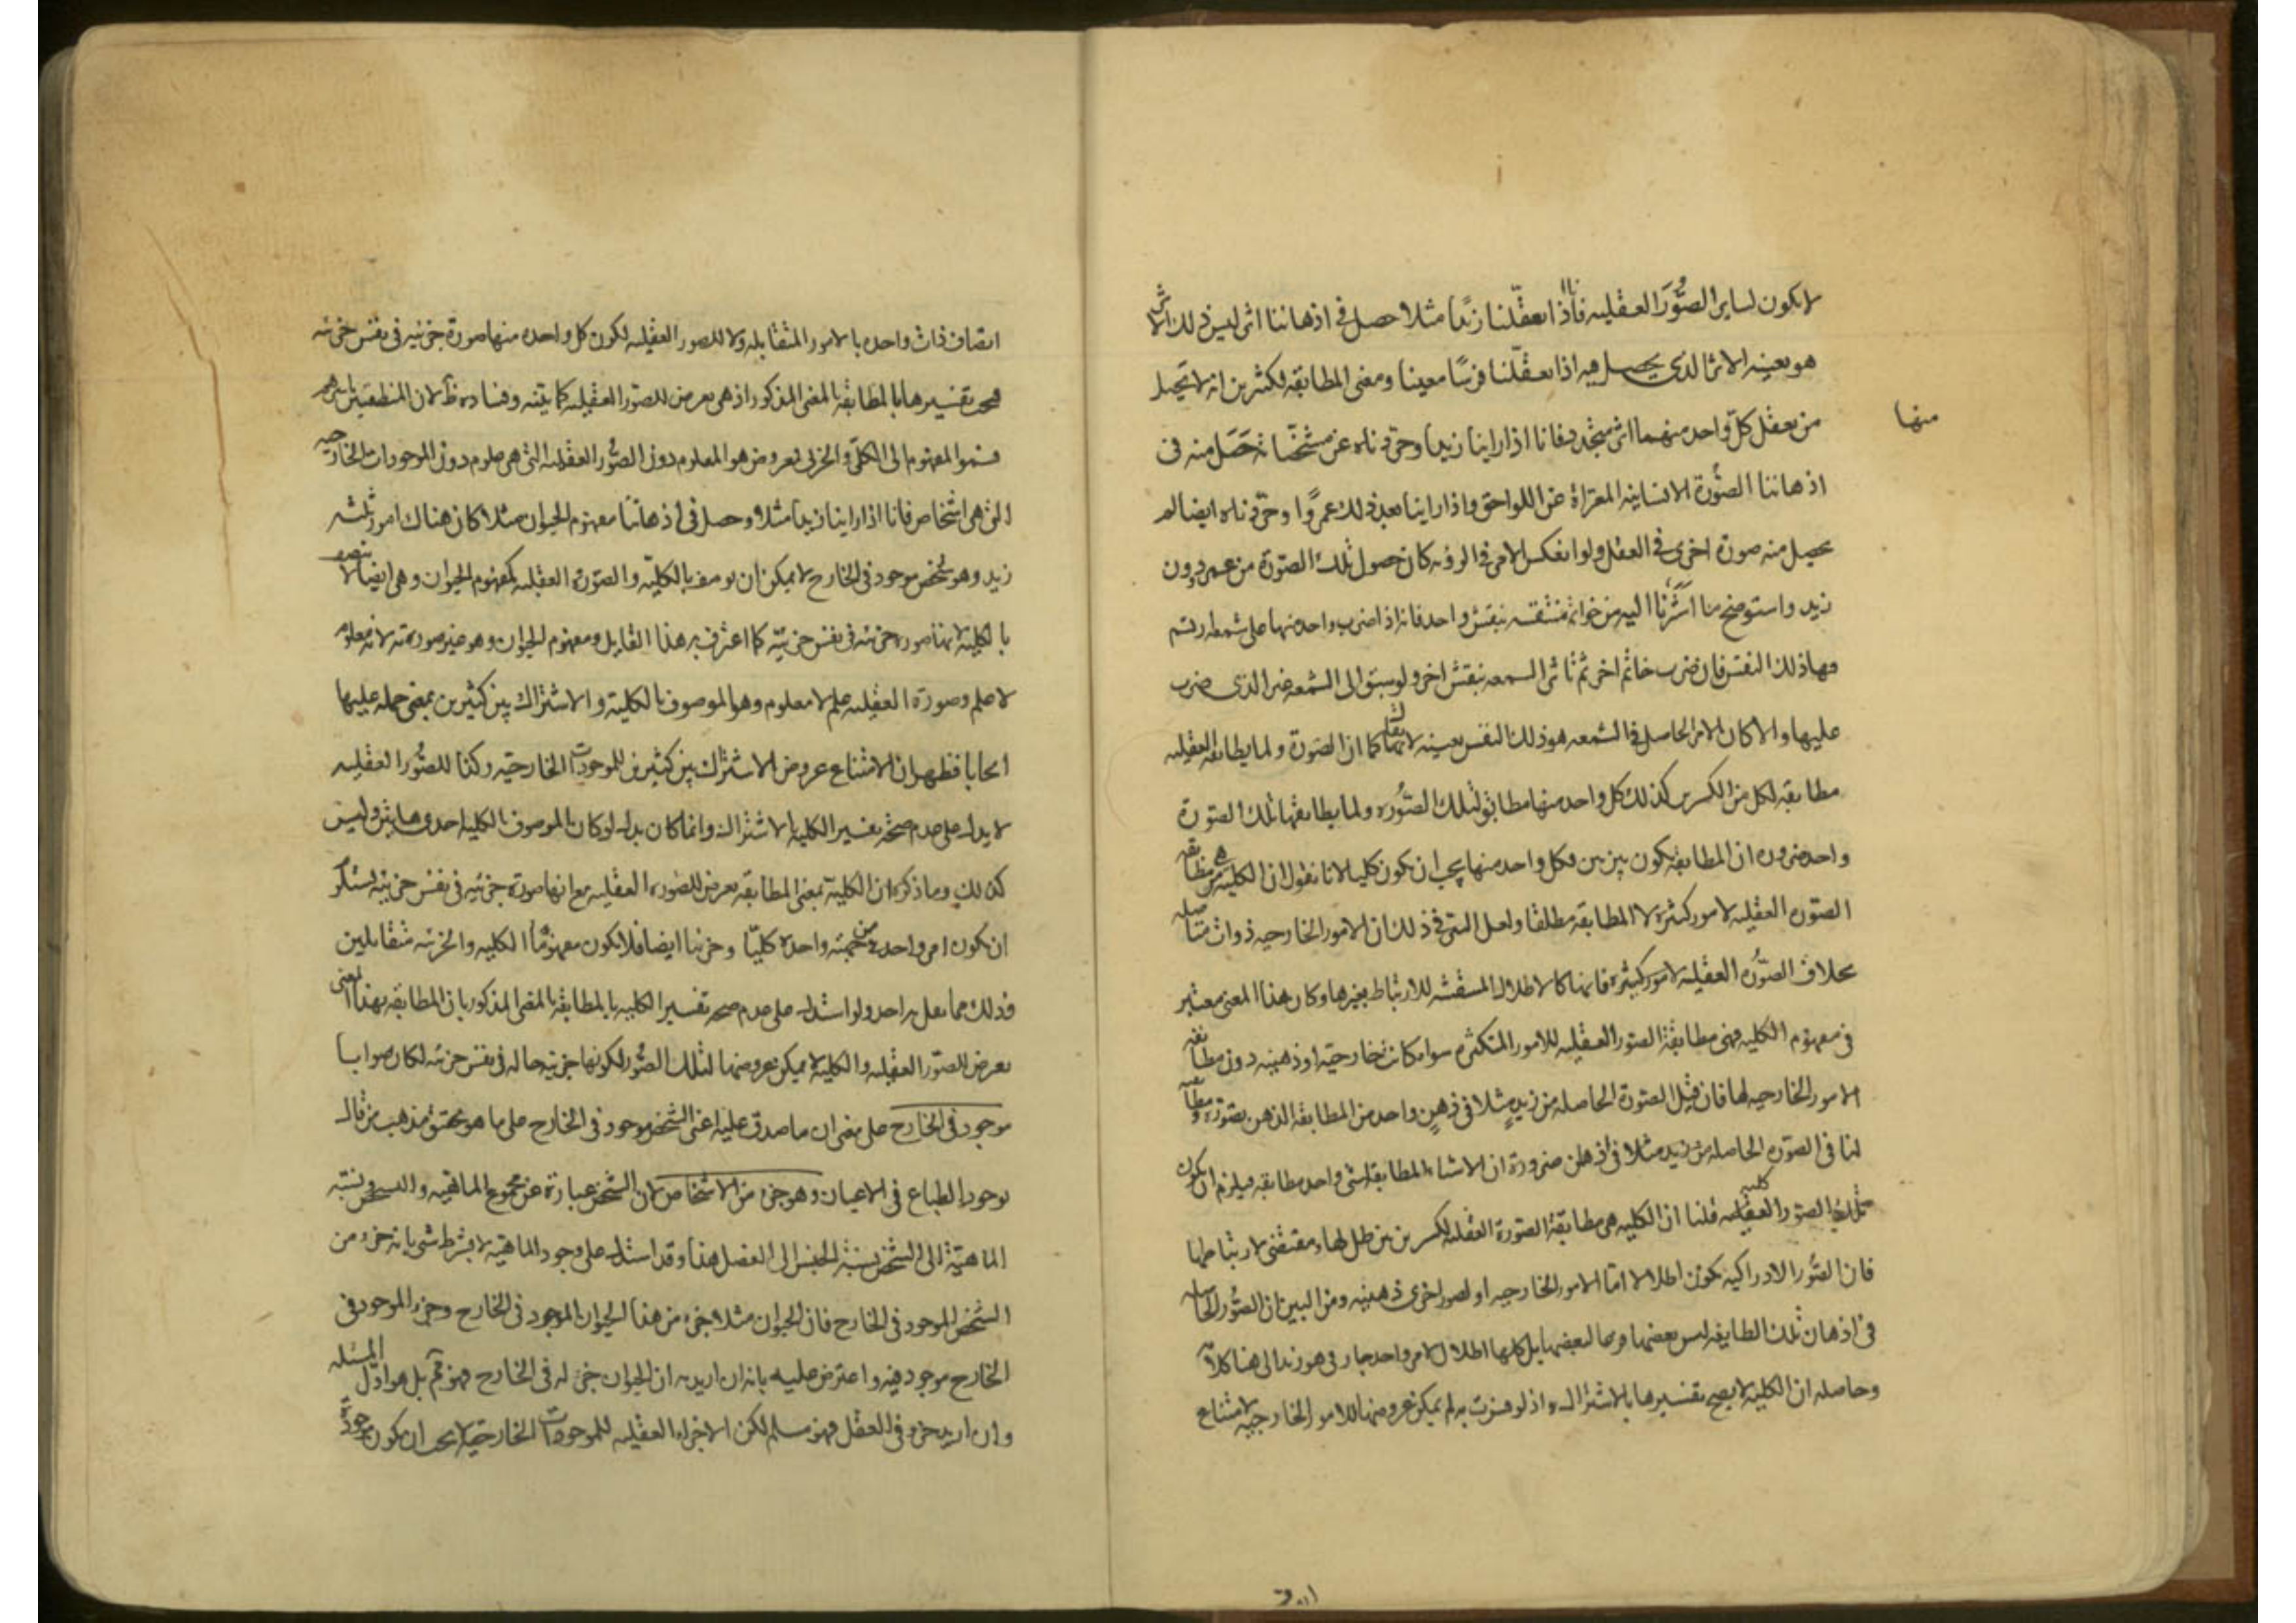 لا يكون لساير الصُّوَر العقليه فانا اذا تعقّلنا زيدًا مثلا حصل فى اذهاننا اثر ليس ذلك الاثر
هو بعينه الاثر الذى يحصل فيه اذا تعقّلنا فرسًا معينا ومعنى المطابقه لكثيرين انه لا يحصل
من تعقل كلّ واحد منهما اثر متجدد فانا اذا راينا زيدا وجرّدناه عن مشخّصاته حَصَل منه فى
منها
اذهاننا الصُّورة الانسانيه المعرّاة عن اللواحق واذا راينا بعد ذلك عمروًا وجرّدناه ايضا لم
يحصل منه صورة اخرى فى العقل ولو انعكس الامر فى الرويه كان حصول تلك الصّورة من عمرو دون
زيد واستوضح ما اشَرْنا اليه من خواتم منتقشه بنقش واحد فانه اذا ضرب واحد منها على شمعه رتسم
فيها ذلك النقش فان ضرب خاتم اخر ثم تاثر الشمعه بنقش اخر ولو سبق الى الشمعه غير الذى ضرب
عليها والا كان الاثر الحاصل فى الشمعه هو ذلك النقش بعينه لا يقال كما ان الصورة ولما يطابقه العقليه
مطابقه لكل من الكثيرين كذلك كل واحد منها مطابق لتلك الصُّوره ولما يطابقها تلك الصّورة
واحد ضروره ان المطابقه يكون بين بين فكل واحد منها يجب ان يكون كليا لانا نقول ان الكليه هى مطابقه
الصّوره العقليه لامور كثيرة لا المطابقه مطلقا ولعل السّر فى ذلك ان الامور الخارجيه ذوات متاصله
بخلاف الصّوره العقليه لامور كثيرة فانها كالاظلال المستقشه للارتباط بغيرها وكان هذا المعنى معتبر
فى مفهوم الكليه فهى مطابقة الصّور العقليه للامور المتكثره سوا كانت خارجيّه او ذهنيه دون مطابقه
الامور الخارجيه لها فان قيل الصّورة الحاصله من زيدٍ مثلا فى ذهنٍ واحد من المطابقة الذهن بصورة مطابقه
لنا فى الصّوره الحاصله من زيد مثلا فى اذهان ضرورة ان الاشياء المطابقه لشى واحد مطابقه فيلزم ان يكون
تلك الصور العقليه كليه قلنا ان الكليه هى مطابقة الصّورة العقليه لكثيرين من ظل لها ومقتضى لارتباطها
فان الصُّور الادراكيه يكون اظلالا امّا للامور الخارجيه او لصور اخرى ذهنيه ومن البين ان الصُّور الحاصله
فى اذهان تلك الطايفه ليس بعضها فرعا لبعضها بل كلها اظلال لامر واحد خارجى هو زيد الى هنا كلامه
وحاصله ان الكليه لا يصح تفسيرها بالاشتراك اذ لو فسرت به لم يمكن عروضها للامور الخارجيه لامتناع
اتصاف ذات واحده بالامور المتقابله ولا للصور العقليه لكون كل واحده منها صورة جزئيه فى نفس جزئيه
فيجب تفسيرها بالمطابقه بالمعنى المذكور اذ هى يعرض للصّور العقليه كما بيّنه وفساده ظ لان المنطقيين باسرهم
قسموا المفهوم الى الكلّى والجزئى فمعروض هو المعلوم دون الصُّور العقليه التى هى علوم دون الموجودات الخارجيه
التى هى اشخاص فانا اذا راينا زيدا مثلا وحصل فى اذهاننا مفهوم الحيوان مثلا كان هناك امور ثلثه
زيد وهو شخص موجود فى الخارج لا يمكن ان يوصف بالكليّه والصّورة العقليه لمفهوم الحيوان وهى ايضا لا يتصف
بالكليه لانها صورة جزئيه فى نفس جزئيّه كما اعترف به هذا القايل ومفهوم الحيوان وهو غير صورته لانه معلوم
لا علم وصورة العقليه علم لا معلوم وهو الموصوف بالكليه والاشتراك بين كثيرين بمعنى حمله عليها
ايجابا فظهر ان الامتناع عروض الاشتراك بين كثيرين للموجودات الخارجيّه وكذا للصُّور العقليه
لا يدل على عدم صحّة تفسير الكليه بالاشتراك وانما كان يدل لو كان الموصوف بالكليه احدى هاتين وليس
كذلك وما ذكره ان الكلية بمعنى المطابقه يعرض للصّوره العقليه مع انها صورة جزئيه فى نفس جزئيّه يستلزم
ان يكون امر واحد من جهته واحدة كليّا وجزئيا ايضا فلا يكون مفهوما الكليه والجزئيه متقابلين
وذلك مما يقل به احد ولو استدل على عدم صحه تفسير الكليه بالمطابقه بالمعنى المذكور بان المطابقه بهذا المعنى
يعرض للصّور العقليه والكليه لا يمكن عروضها لتلك الصُّور لكونها جزئيه حاله فى نفس جزئيه لكان صوابا
موجود فى الخارج على معنى ان ما صدق عليه اعنى الشخص موجود فى الخارج على ما هو تحقيق مذهب من قال
بوجود الطباع فى الاعيان وهو جزء من الاشخاص لان الشخص عبارة عن مجموع الماهيه والتشخص ونسبة
الماهيّة الى التشخص نسبة الجنس الى الفصل هذا وقد استدل على وجود الماهيّه لا بشرط شى بانه جزء من
الشخص الموجود فى الخارج فان الحيوان مثلا جزء من هذا الحيوان الموجود فى الخارج وجزء الموجود فى
الخارج موجود فيه واعترض عليه بانه ان اريد ان الحيوان جزء له فى الخارج فهو مم بل هو اوّل المسئله
وان اريد جزء فى العقل فهو مسلم لكن الاجزاء العقليه للموجودات الخارجيّه لا يجب ان يكون موجودة